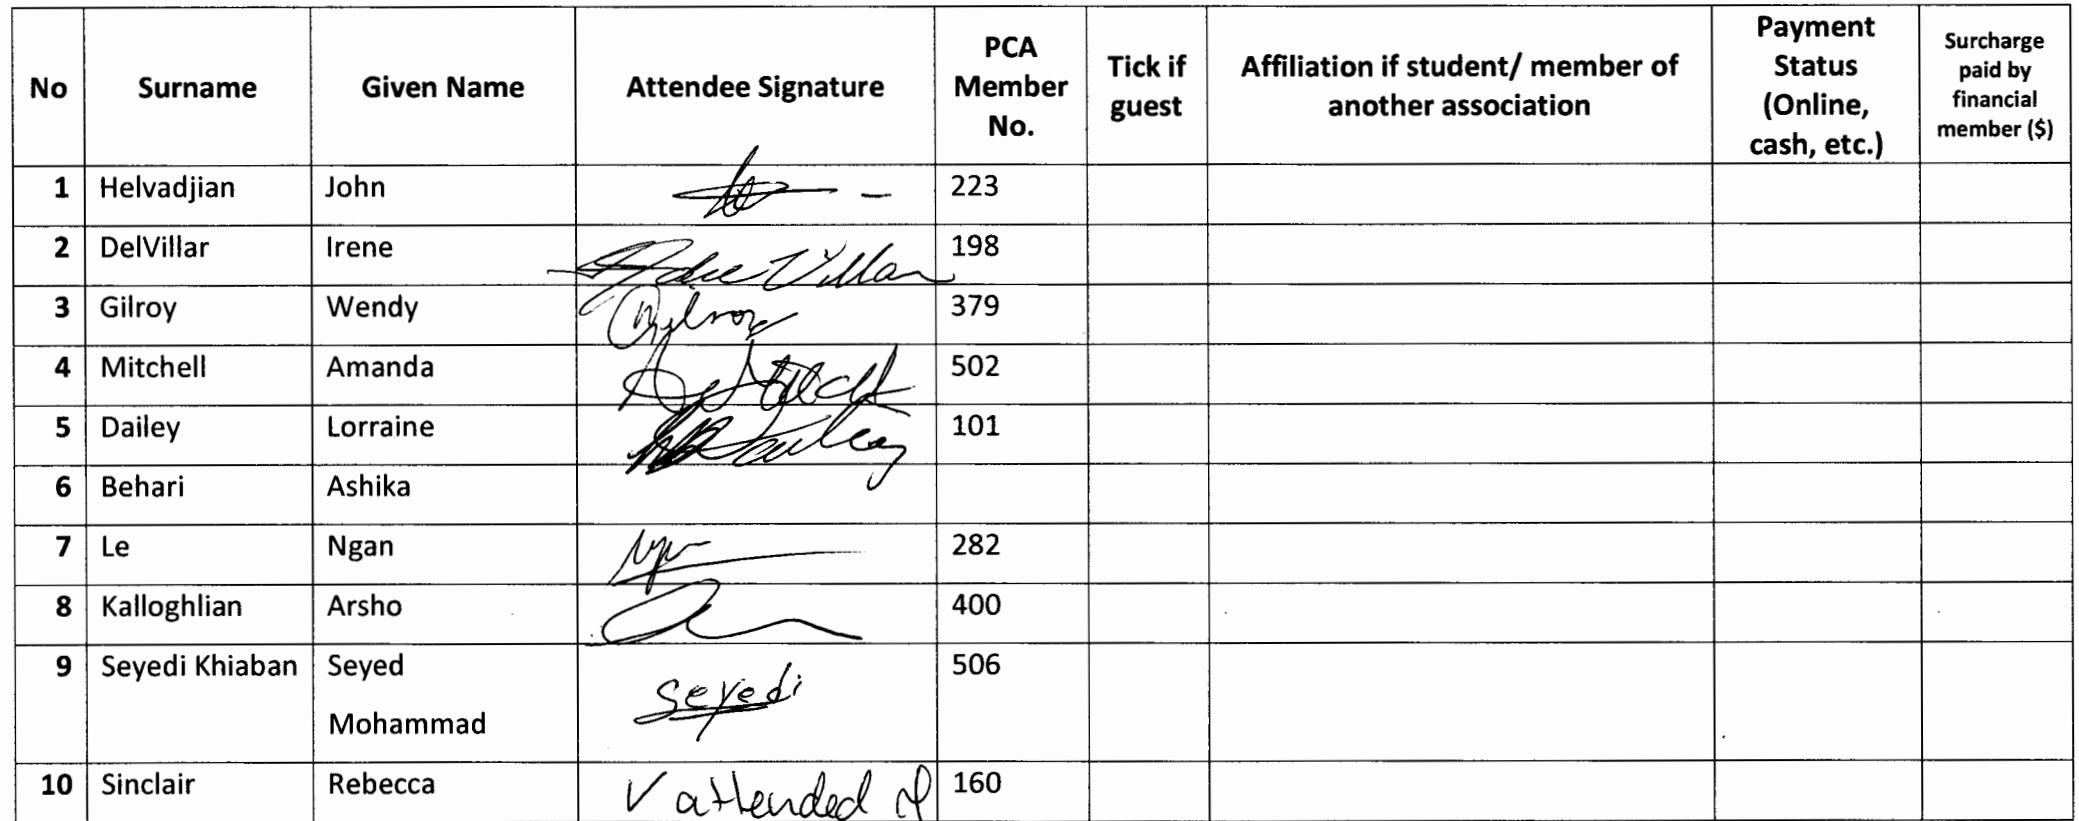 No Surname Given Name Attendee Signature PCA Member No. Tick if guest Affiliation if student/ member of another association Payment Status (Online, cash, etc.) Surcharge paid by financial member ($)
1 Helvadjian John 223
2 DelVillar Irene 198
3 Gilroy Wendy 379
4 Mitchell Amanda 502
5 Dailey Lorraine 101
6 Behari Ashika
7 Le Ngan 282
8 Kalloghlian Arsho 400
9 Seyedi Khiaban Seyed Seyedi 506
Mohammad
10 Sinclair Rebecca ✓ attended 160